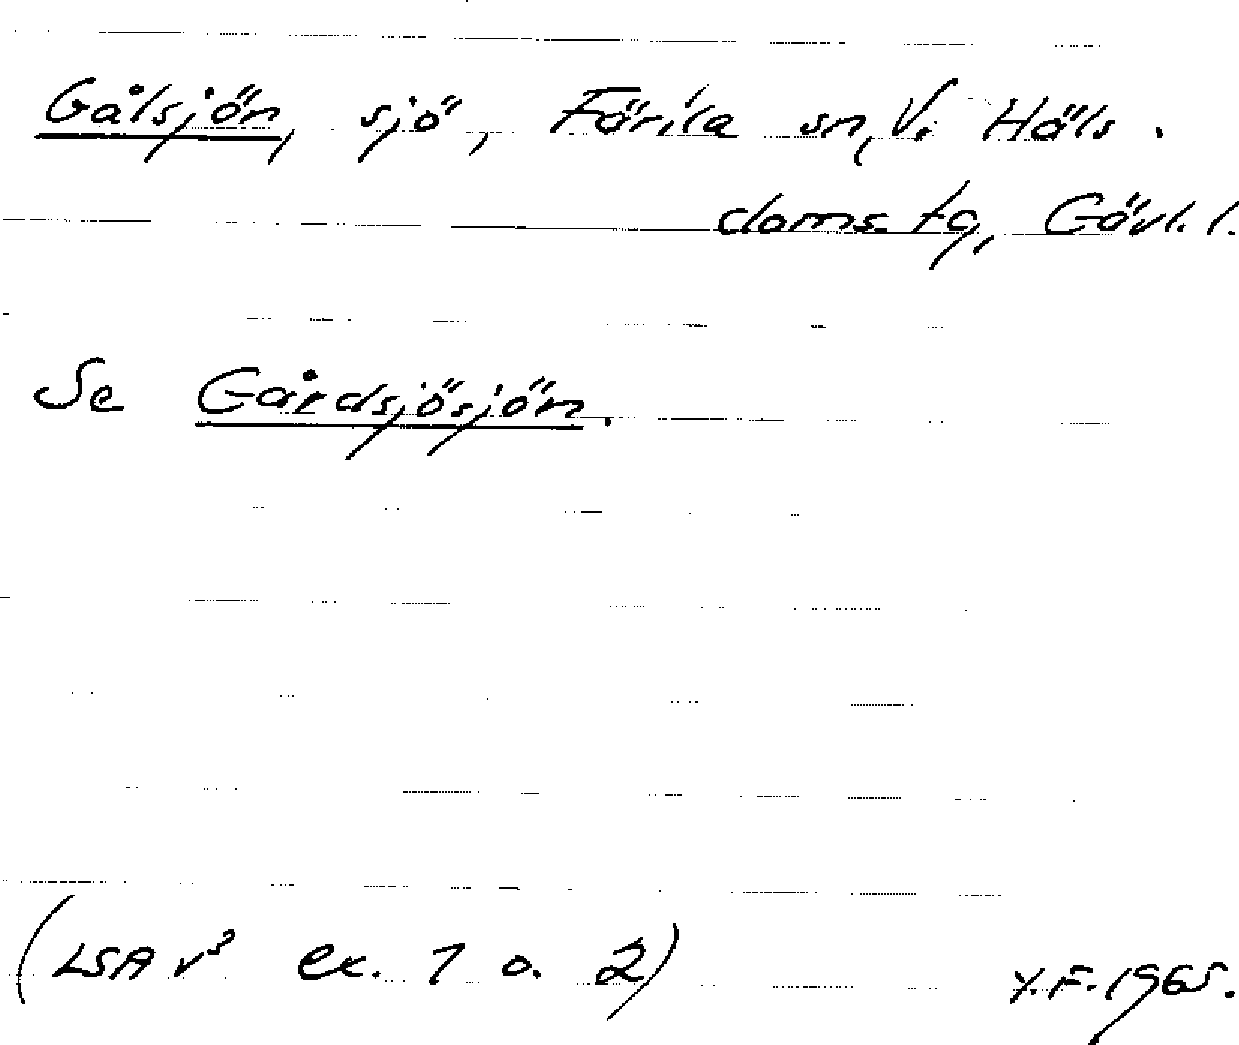 Gålsjön, sjö, Färila sn, V. Häls.
doms. tg, Gävl. l.
Se Gårdsjösjön.
(LSA v³ ex. 1 o. 2) Y.F. 1965.